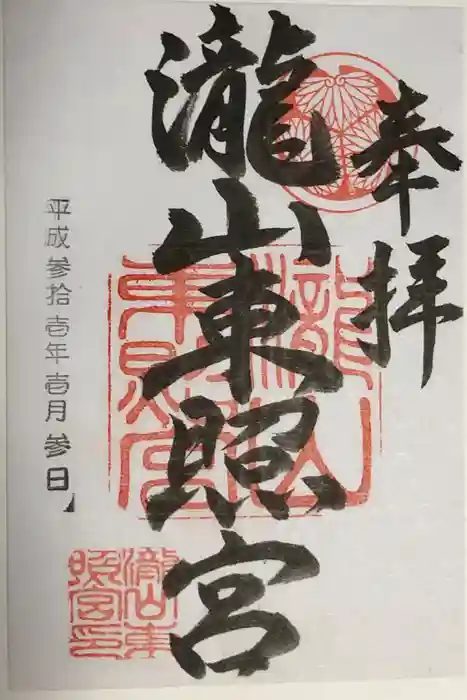 奉拝
瀧山東照宮
平成参拾壱年壱月参日
瀧山東照宮
瀧山東照宮印